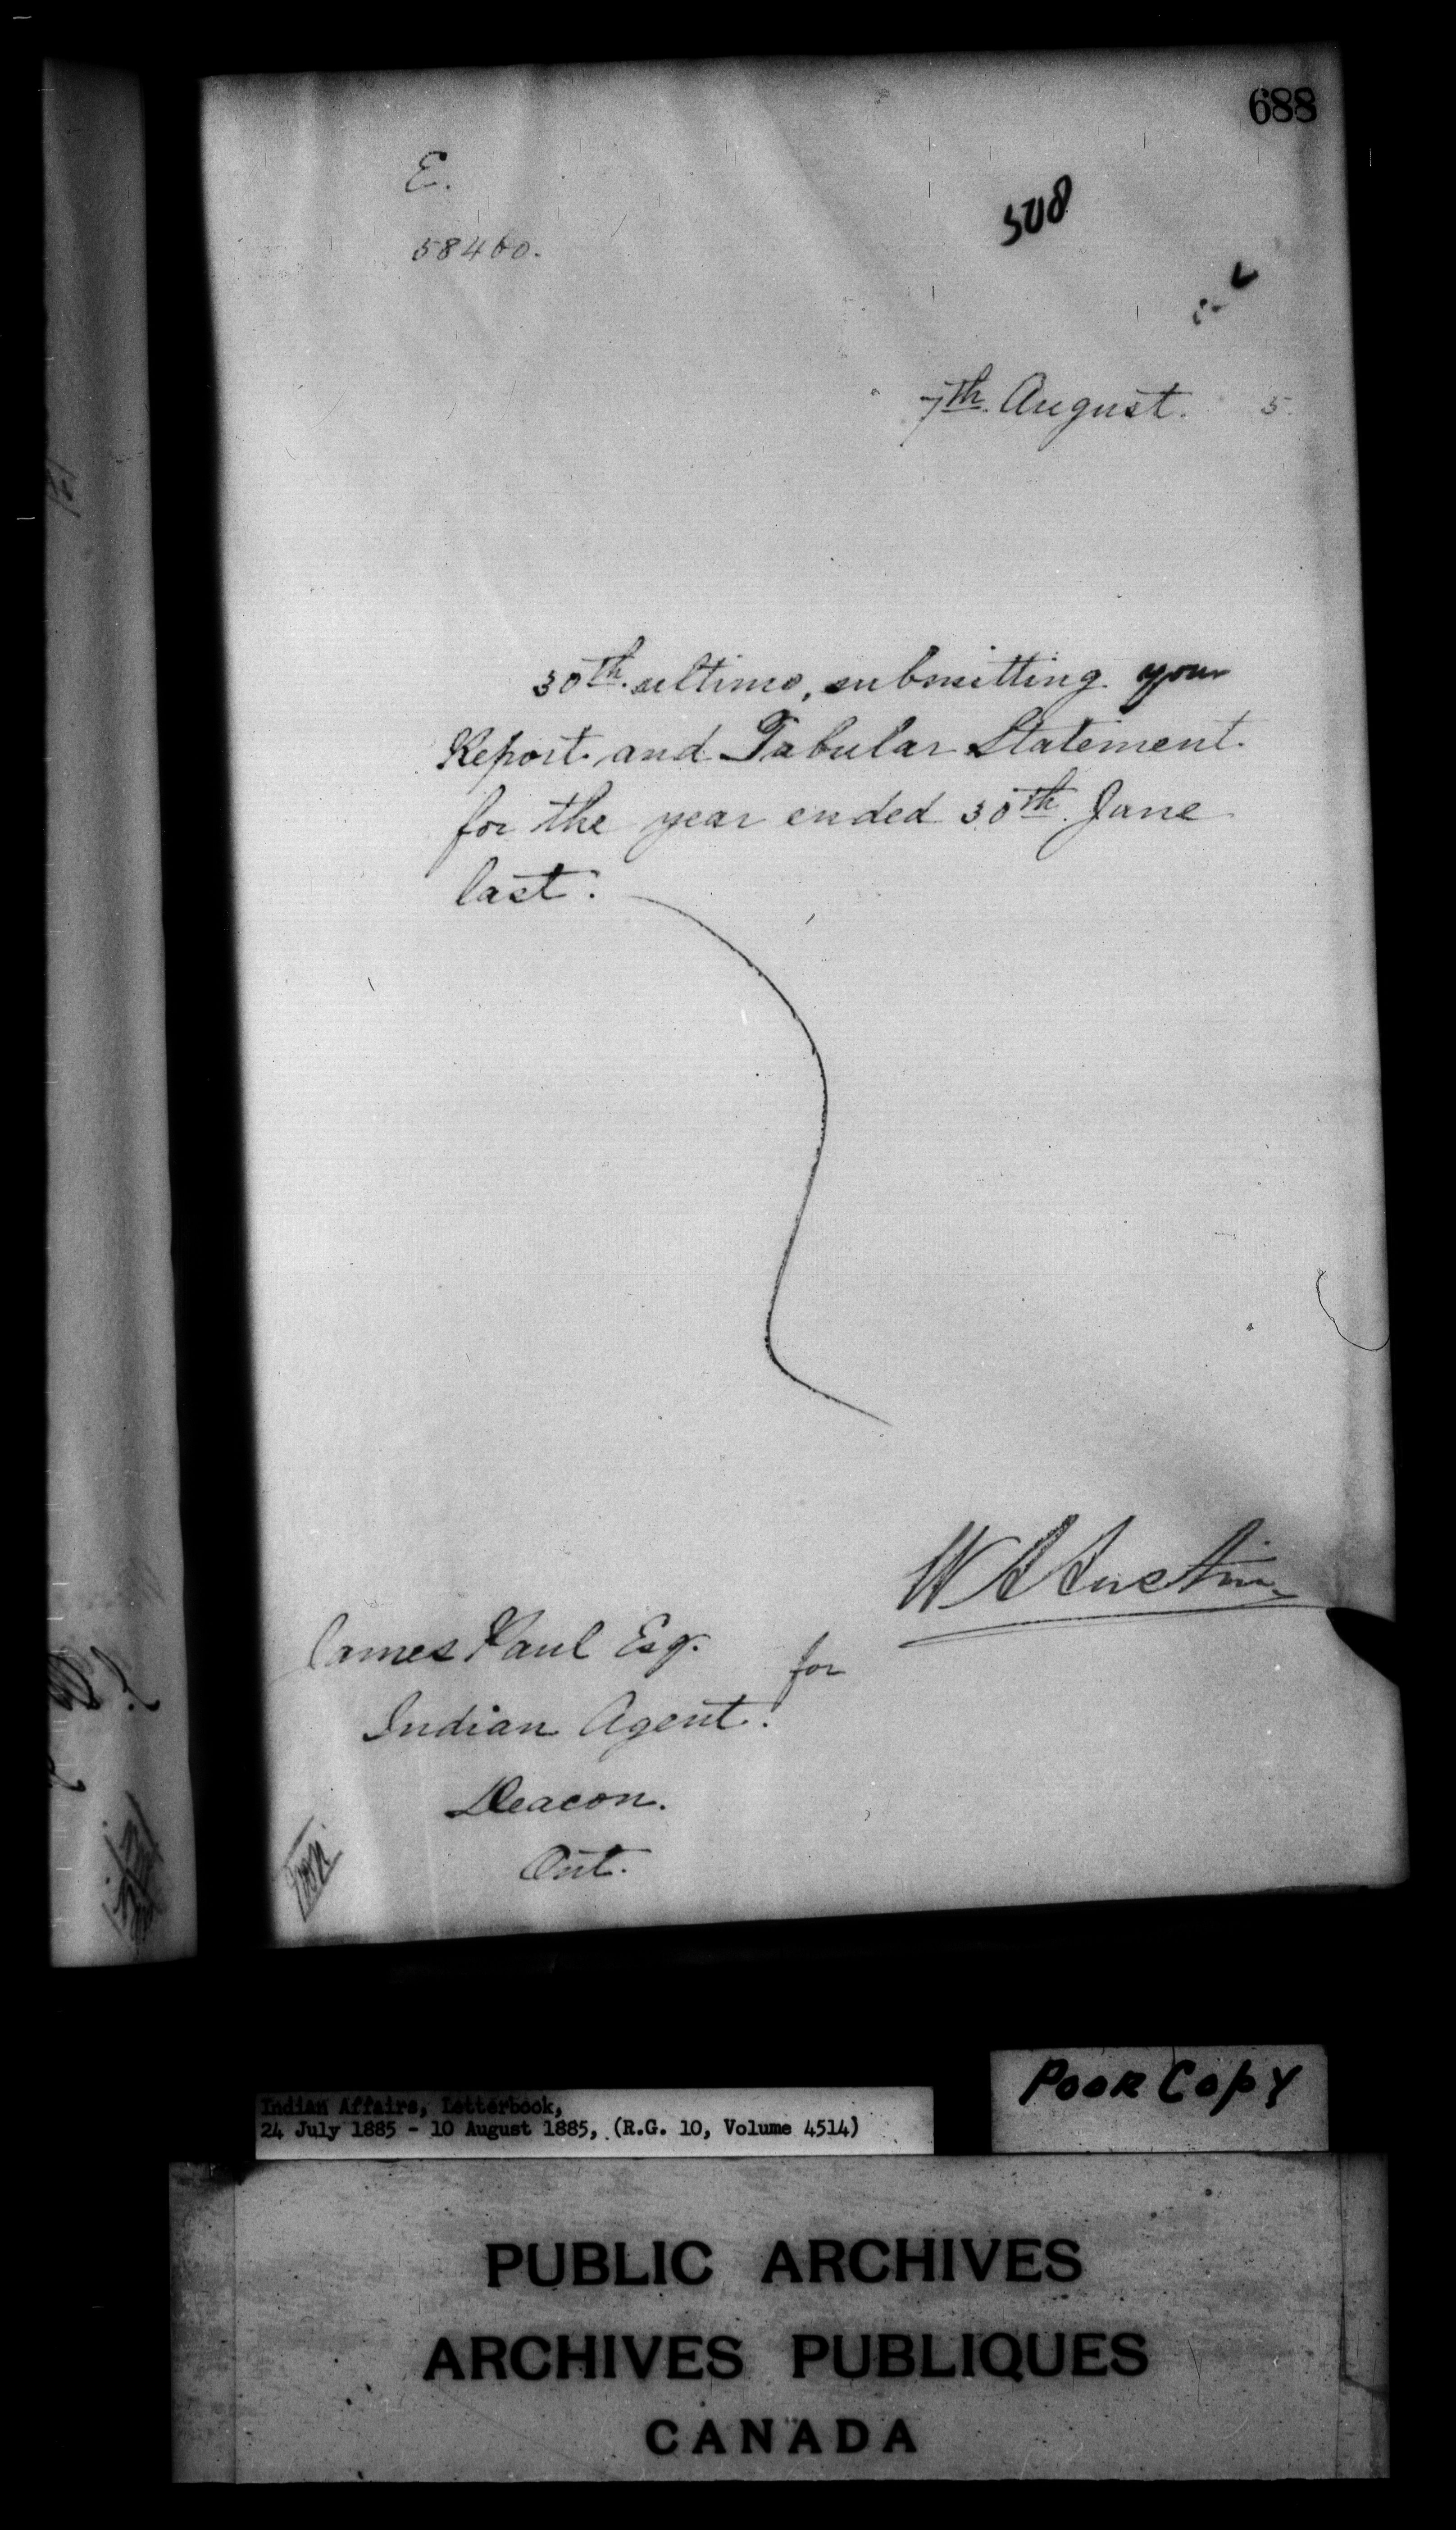 688
E.
508
58460.
7th August. 5.
30th ultimo, submitting your
Report and Tabular Statement
for the year ended 30th June
last.
W A Austin
James Paul Esq.
for
Indian Agent.
Deacon.
Ont.
Poor Copy
Indian Affairs, Letterbook,
24 July 1885 - 10 August 1885, (R.G. 10, Volume 4514)
PUBLIC ARCHIVES
ARCHIVES PUBLIQUES
CANADA